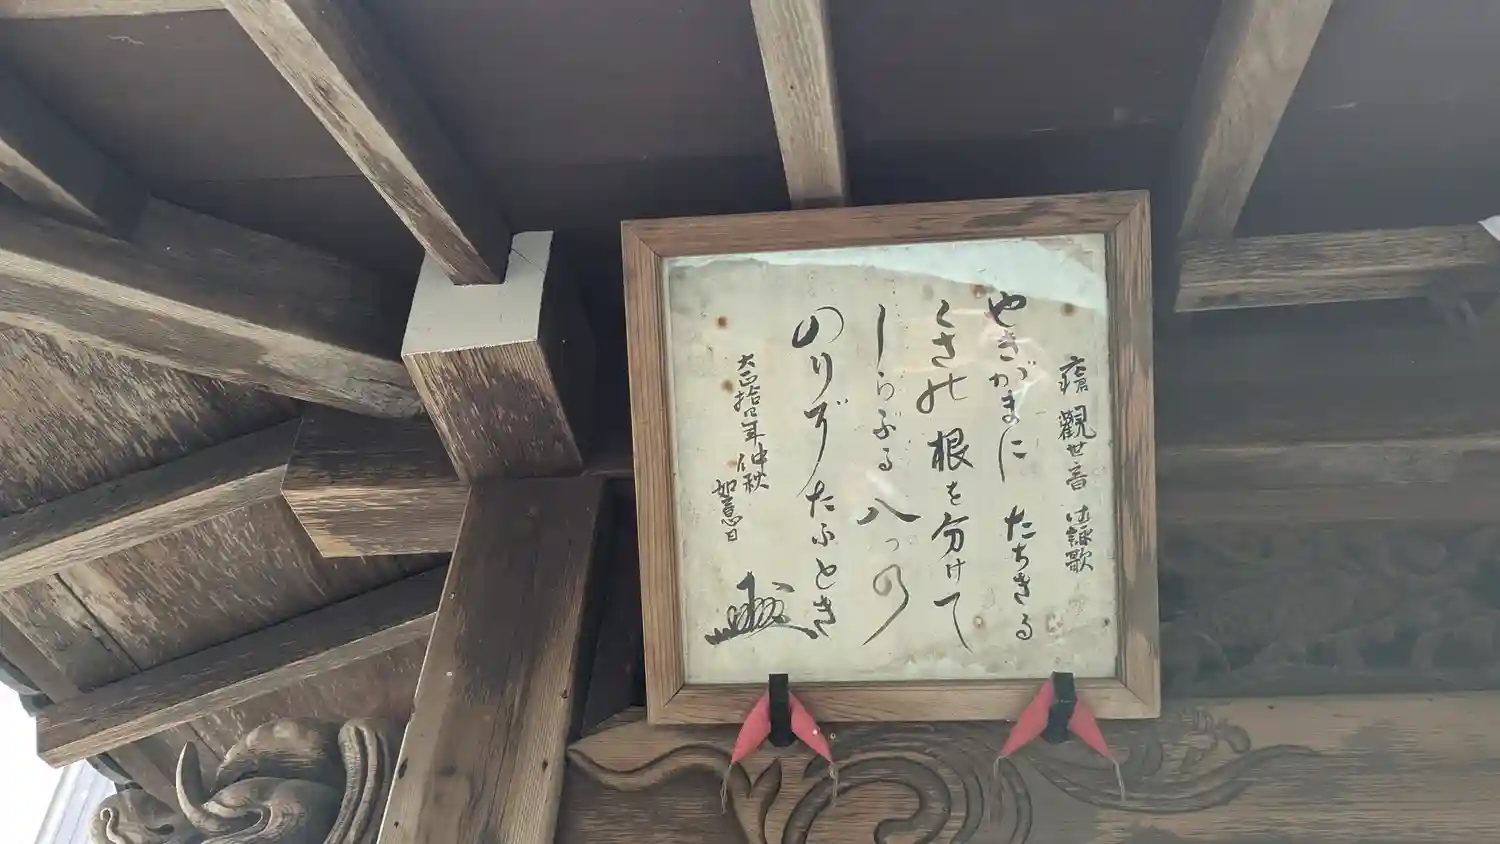 瘡観世音御詠歌
やきがまに たちきる
くさの根を分けて
しらぶる八つの
のりぞたふとき
大正拾四年仲秋
如意日